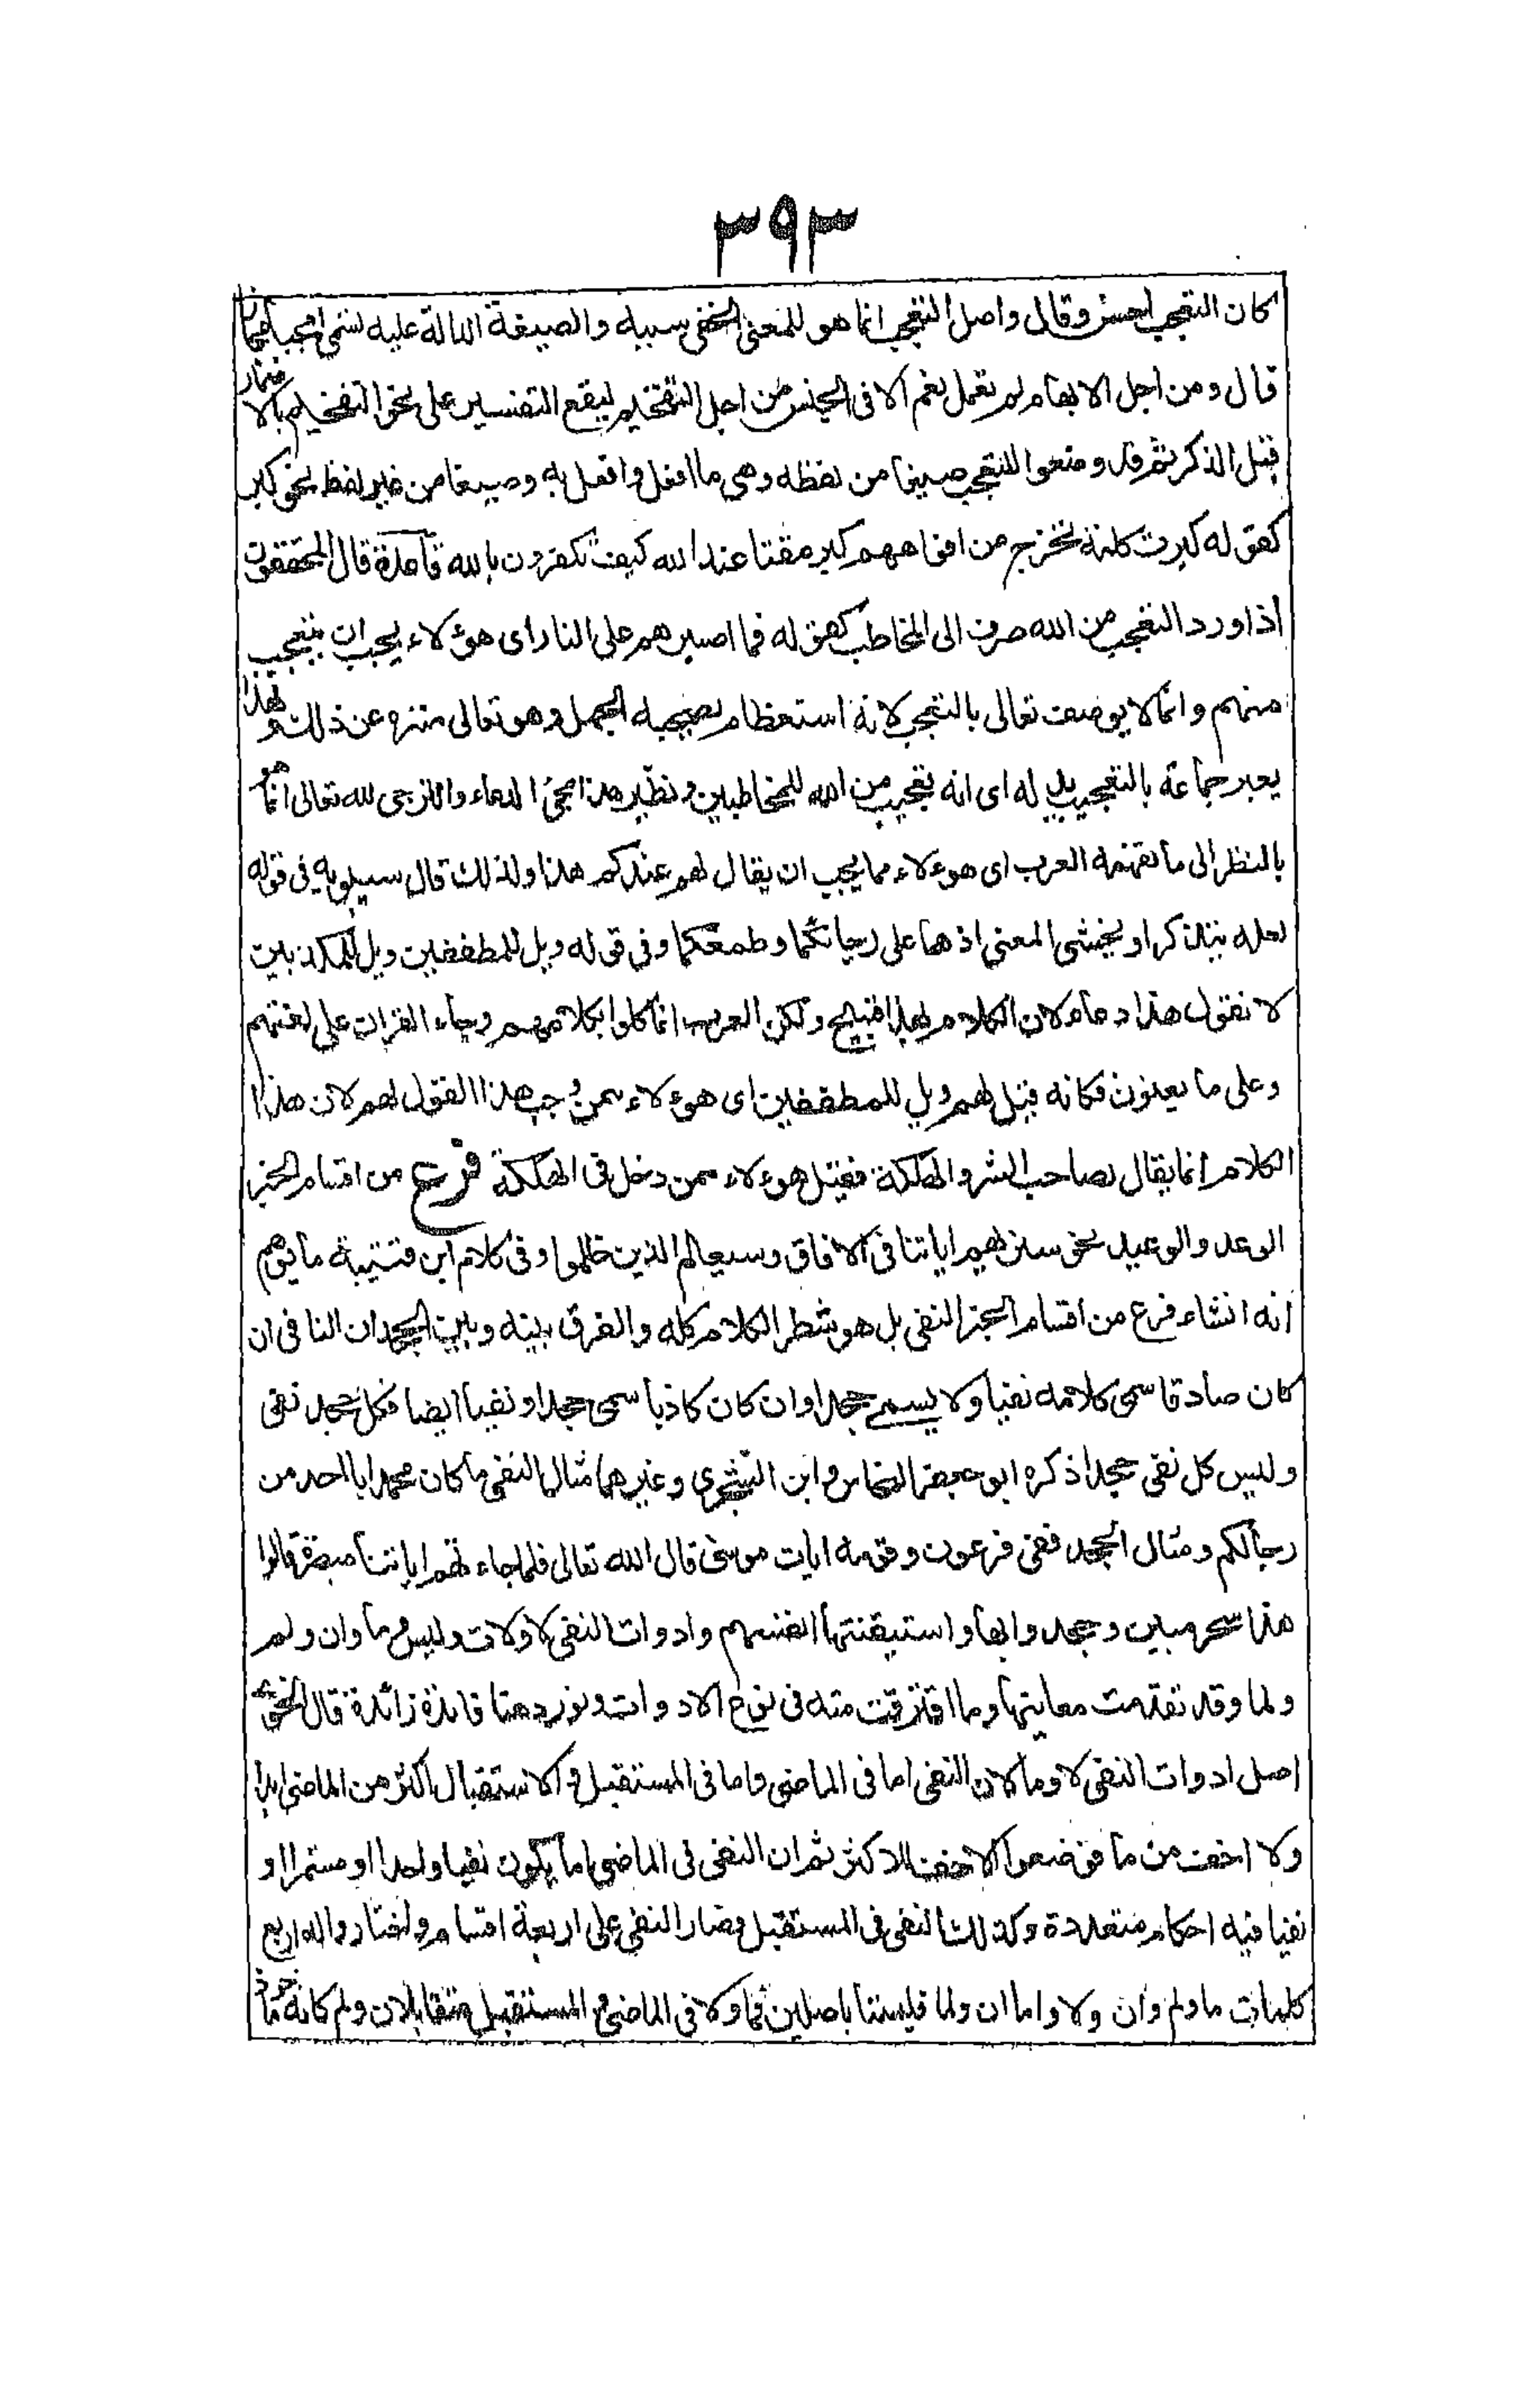 ٣٩٣
كان التعجب احسن وقال واصل التعجب انما هو للمعنى الخفى سببه والصيغة الدالة عليه تسمى تعجبا مجازا
قال ومن اجل الابهام لم تعمل نعم الا فى الجنس من اجل التفخيم ليقع التفسير على نحو التفخيم بالاضمار
قبل الذكر ثم قد وضعوا للتعجب صيغا من لفظه وهى ما افعل وافعل به وصيغا من غير لفظه نحو كبر
كقوله كبرت كلمة تخرج من افواههم كبر مقتا عند الله كيف تكفرون بالله قاعدة قال المحققون
اذا ورد التعجب من الله صرف الى المخاطب كقوله فما اصبرهم على النار اى هؤلاء يجب ان يتعجب
منهم وانما لا يوصف تعالى بالتعجب لانه استعظام يصحبه الجهل وهو تعالى منزه عن ذلك ولهذا
يعبر جماعة بالتعجيب بدله اى انه تعجيب من الله للمخاطبين ونظير هذا مجئ الدعاء والترجى لله تعالى انما هو
بالنظر الى ما تفهمه العرب اى هوءلاء مما يجب ان يقال لهم عندكم هذا ولذلك قال سيبويه فى قوله
لعله يتذكر او يخشى المعنى اذهبا على رجائكما وطمعكما وفى قوله ويل للمطففين ويل للمكذبين
لا نقول هذا دعاء لان الكلام بهذا قبيح ولكن العرب انما كلموا بكلامهم وجاء القران على لغتهم
وعلى ما يعنون فكانه قيل لهم ويل للمطففين اى هوءلاء ممن وجب هذا القول لهم لان هذا
الكلام انما يقال لصاحب الشر والهلكة فقيل هوءلاء ممن دخل فى الهلكة فرع من اقسام الخبر
الوعد والوعيد نحو سنريهم اياتنا فى الافاق وسيعلم الذين ظلموا وفى كلام ابن قتيبة ما يوهم
انه انشاء فرع من اقسام الخبر النفى بل هو شطر الكلام كله والفرق بينه وبين الجحد ان النافى ان
كان صادقا سمى كلامه نفيا ولا يسمى جحدا وان كان كاذبا سمى جحدا ونفيا ايضا فكل جحد نفى
وليس كل نفى جحدا ذكره ابو جعفر النحاس وابن الشجرى وغيرهما مثال النفى ما كان محمد ابا احد من
رجالكم ومثال الجحد نفى فرعون وقومه ايات موسى قال الله تعالى فلما جاءتهم اياتنا مبصرة قالوا
هذا سحر مبين وجحدوا بها واستيقنتها انفسهم وادوات النفى لا ولات وليس وما وان ولم
ولما وقد تقدمت معانيها وما افترقت فيه فى نوع الادوات ونورد هنا فائدة زائدة قال الخويى
اصل ادوات النفى لا وما لان النفى اما فى الماضى واما فى المستقبل والاستقبال اكثر من الماضى ابدا
ولا اخف من ما فوضعوا الاخف للاكثر ثم ان النفى فى الماضى اما يكون نفيا واحدا او مستمرا او
نفيا فيه احكام متعددة وكذلك النفى فى المستقبل فصار النفى على اربعة اقسام واختاروا له اربع
كلمات ما ولم ولن ولا واما ان ولما فليستا باصلين فما ولا فى الماضى والمستقبل متقابلان ولم كانه ماخوذ